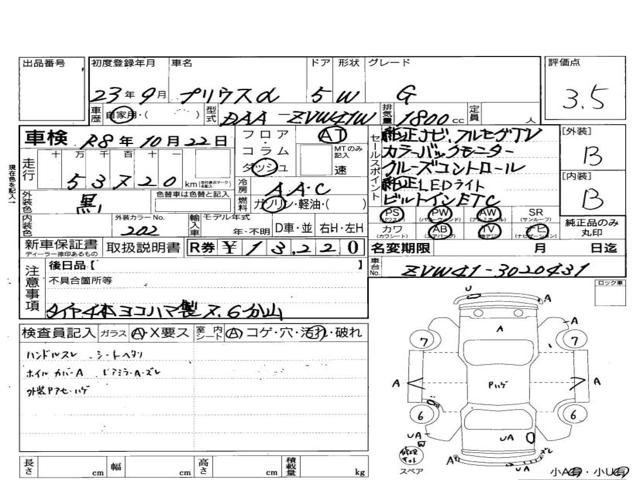 出品番号
初度登録年月 車名 ドア 形状 グレード 評価点
23年9月 プリウスα 5 W G 3.5
車歴 自家用・( ) 型式 DAA-ZVW41W 排気量 1800cc 定員 人
車検 R8年10月22日
フロア コラム ダッシュ AT MTのみ記入 速
走行 十万 万 千 百 十 一
53720 km
冷房 AAC
燃料 ガソリン・軽油・( )
現在色を記入
外装色 黒 色替車は色替と記入
内装色 外装カラーNo. 202
輸入車 モデル年式 年・不明 D車・並 右H・左H
セールスポイント
純正ナビ、フルセグTV
カラーバックモニター
クルーズコントロール
純正LEDライト
ビルトインETC
PS PW AW SR
カワ AB TV ナビ
純正品のみ丸印
[外装] B
[内装] B
新車保証書 ディーラー捺印あるもの 取扱説明書 R券 ¥13,220
名変期限 月 日迄
車台No. ZVW41-3020431
注意事項 後日品[ ]
不具合箇所等
タイヤ4本ヨコハマ製 7.6分山
ロック車
検査員記入 ガラス A・X要ス 室内シート A コゲ・穴・汚れ・破れ
ハンドルスレ シートヘタリ
ホイルカバーA ピアミラーA・ズレ
U A
7 7
A Pハゲ A
6 6
UA UA
A
スペア
小A・小U
長さ cm 幅 cm 高さ cm 積載量 kg